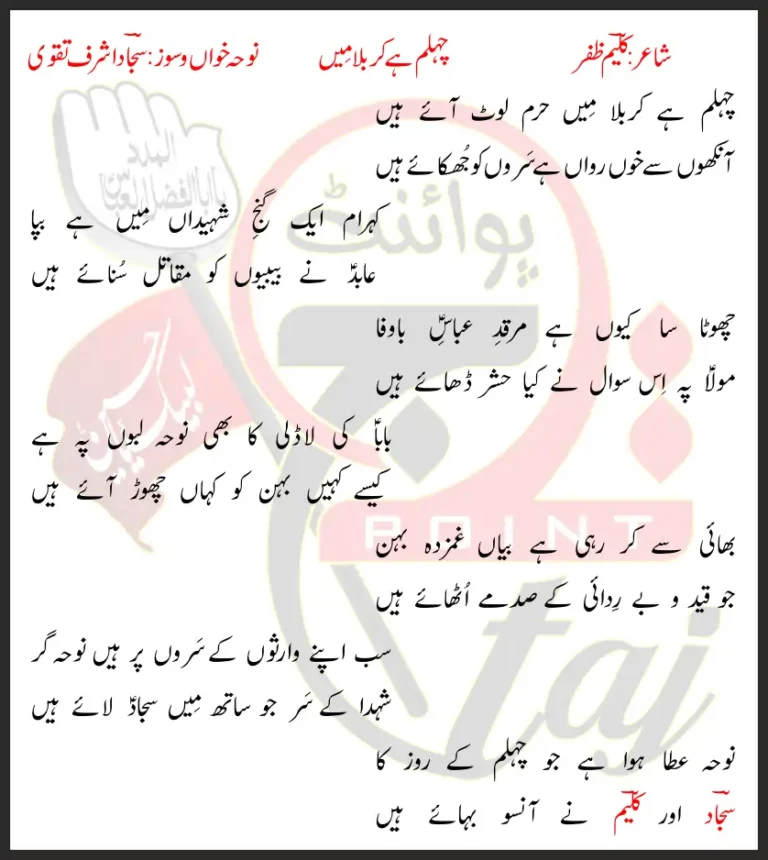 شاعر: کلیم ظفر چہلم ہے کربلا مِیں نوحہ خواں و سوز: سجاد اشرف تقوی
چہلم ہے کربلا مِیں حرم لوٹ آئے ہیں
آنکھوں سے خوں رواں ہے سَروں کو جُھکائے ہیں
کہرام ایک گنجِ شہیداں مِیں ہے بپا
عابدؑ نے بیبیوں کو مقاتل سُنائے ہیں
چھوٹا سا کیوں ہے مرقدِ عباسِؑ باوفا
مولاؑ پہ اِس سوال نے کیا حشر ڈھائے ہیں
باباؑ کی لاڈلی کا بھی نوحہ لبوں پہ ہے
کیسے کہیں بہن کو کہاں چھوڑ آئے ہیں
بھائی سے کر رہی ہے بیاں غمزدہ بہن
جو قید و بے رِدائی کے صدمے اُٹھائے ہیں
سب اپنے وارثوں کے سَروں پر ہیں نوحہ گر
شہدا کے سَر جو ساتھ مِیں سجادؑ لائے ہیں
نوحہ عطا ہوا ہے جو چہلم کے روز کا
سجاد اور کلیم نے آنسو بہائے ہیں
المدد
یا ابالفضل العباس
پوائنٹ
لبیک یا حسین
POINT
taj